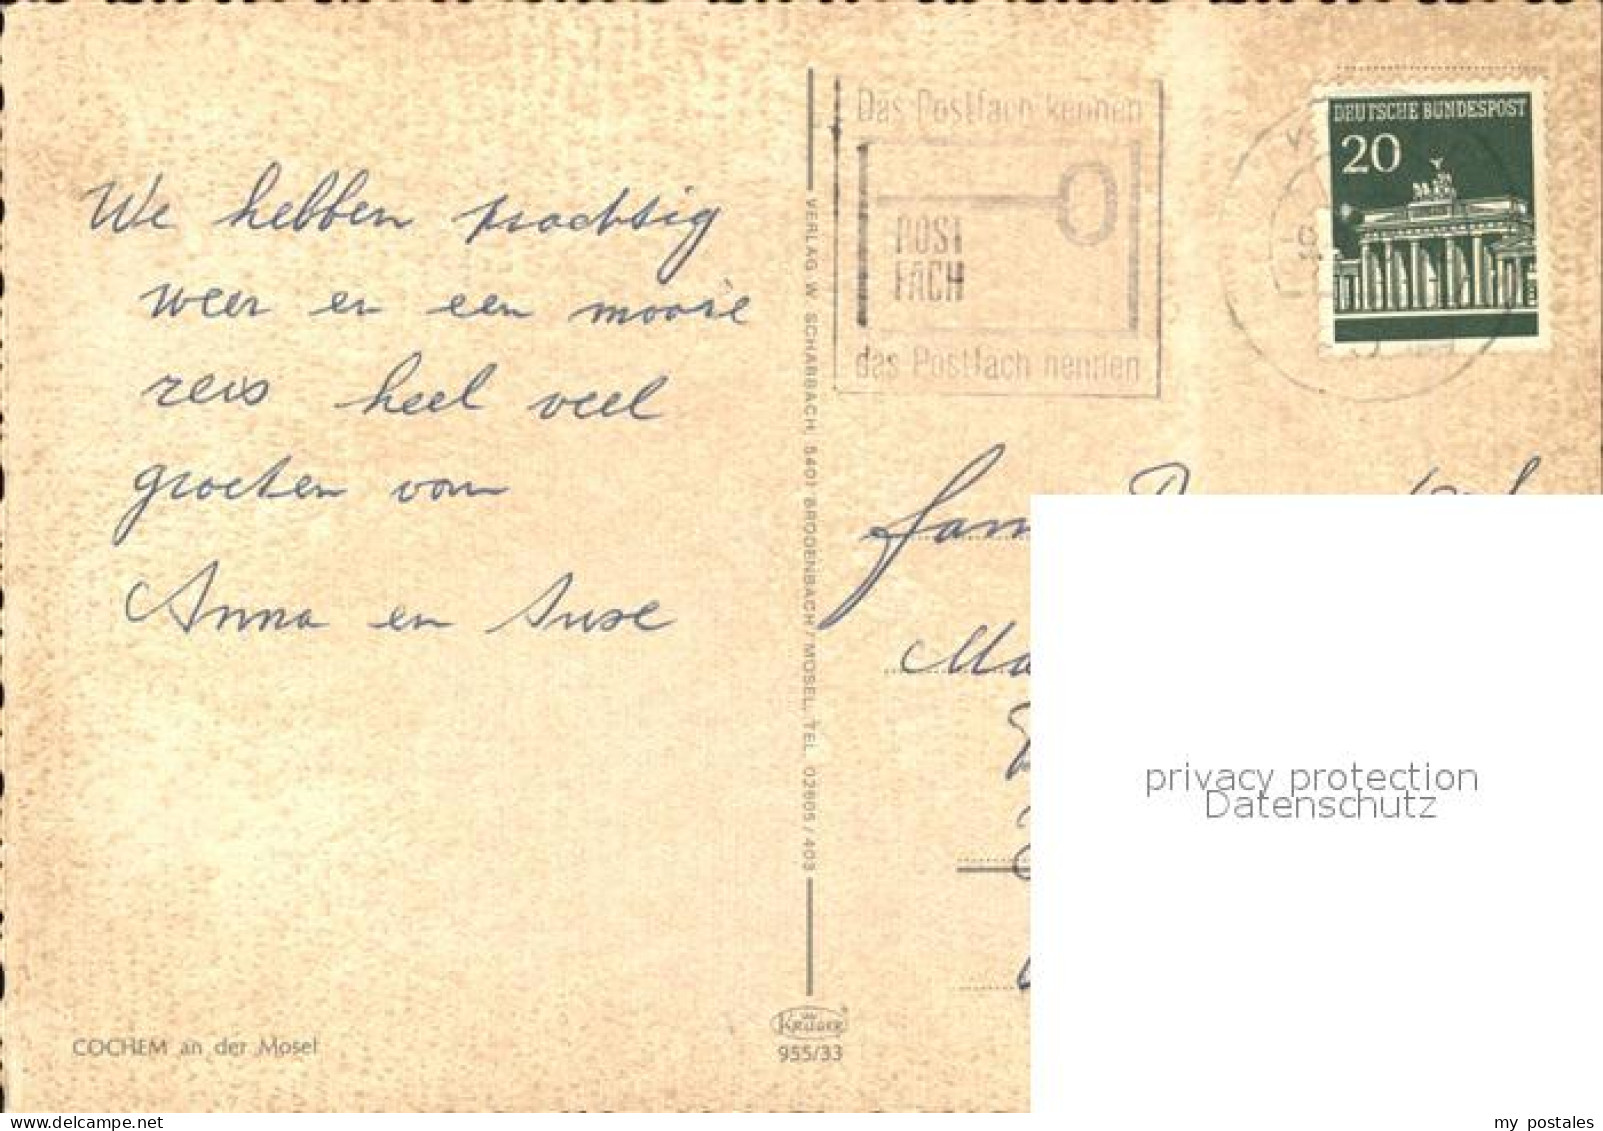 We hebben prachtig
weer en een mooie
reis heel veel
groeten van
Anna en Suse
COCHEM an der Mosel
VERLAG W. SCHARBACH, 5401 BRODENBACH/MOSEL, TEL. 02605/403
KRÜGER
955/33
Das Postfach kennen
POST
FACH
das Postfach nennen
DEUTSCHE BUNDESPOST
20
Fam
privacy protection
Datenschutz
my postales